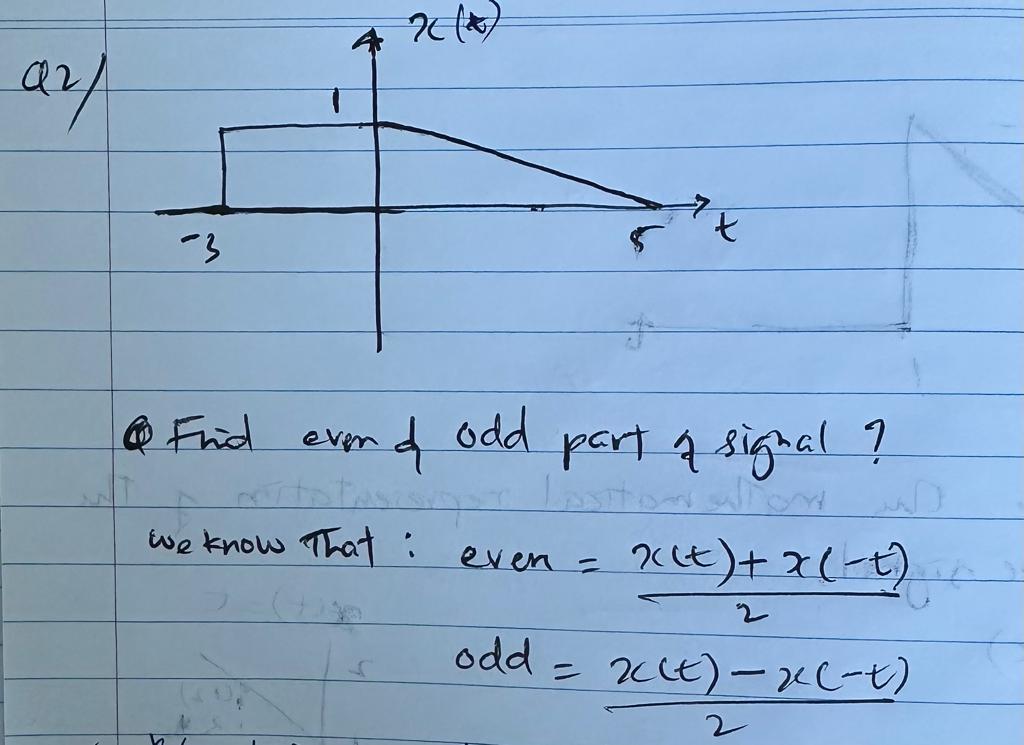 x(t)
Q2/
1
-3
5
t
Find even & odd part of signal ?
we know That : even = x(t) + x(-t)
2
odd = x(t) - x(-t)
2